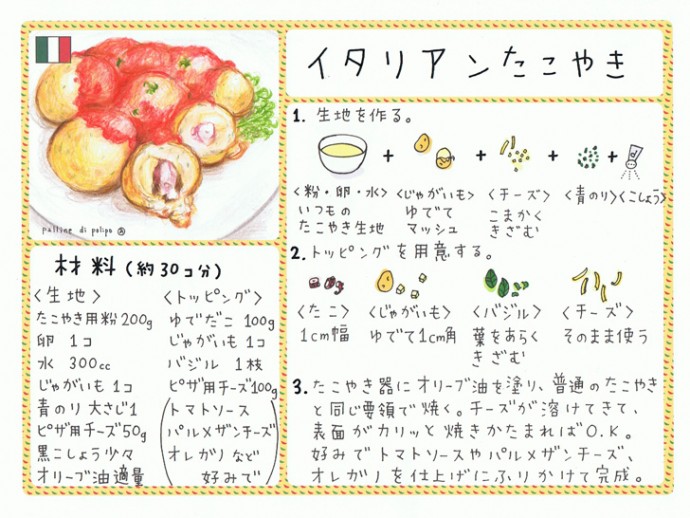 イタリアンたこやき
palline di polipo
材料(約30コ分)
〈生地〉
たこやき用粉200g
卵 1コ
水 300cc
じゃがいも 1コ
青のり 大さじ1
ピザ用チーズ50g
黒こしょう少々
オリーブ油適量
〈トッピング〉
ゆでだこ 100g
じゃがいも 1コ
バジル 1枝
ピザ用チーズ100g
(トマトソース
パルメザンチーズ
オレガノ など
好みで)
1. 生地を作る。
+ + + +
〈粉・卵・水〉
いつもの
たこやき生地
〈じゃがいも〉
ゆでて
マッシュ
〈チーズ〉
こまかく
きざむ
〈青のり〉〈こしょう〉
2. トッピングを用意する。
〈たこ〉
1cm幅
〈じゃがいも〉
ゆでて1cm角
〈バジル〉
葉をあらく
きざむ
〈チーズ〉
そのまま使う
3. たこやき器にオリーブ油を塗り、普通のたこやき
と同じ要領で焼く。チーズが溶けてきて、
表面がカリッと焼きかたまればO.K。
好みでトマトソースやパルメザンチーズ、
オレガノを仕上げにふりかけて完成。